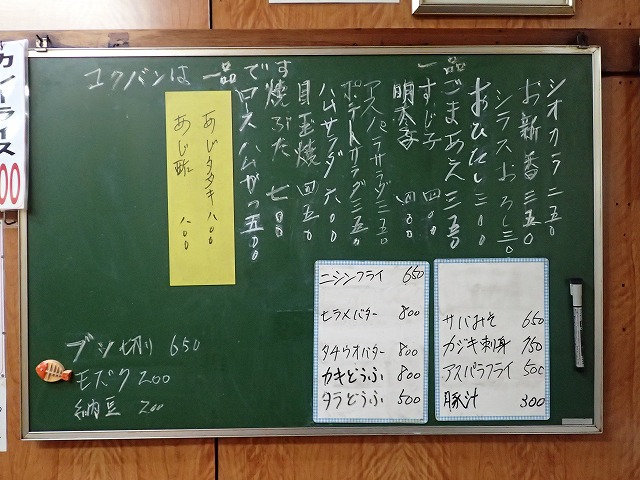 シオカラ 二五〇
お新香 三五〇
シラスおろし 三五〇
おひたし 三〇〇
ごまあえ 三五〇
すじ子 四〇〇
明太子 四〇〇
アスパラサラダ 三五〇
ポテトサラダ 三五〇
ハムサラダ 六〇〇
目玉焼 四五〇
焼ぶた 七〇〇
ロースハムかつ 五〇〇
コクバンは一品です
あじタタキ 八〇〇
あじ酢 八〇〇
ブツ切り 650
モズク 200
納豆 200
ニシンフライ 650
ヒラメバター 800
タチウオバター 800
カキどうふ 800
タラどうふ 500
サバみそ 650
カジキ刺身 750
アスパラフライ 500
豚汁 300
カレーライス
00